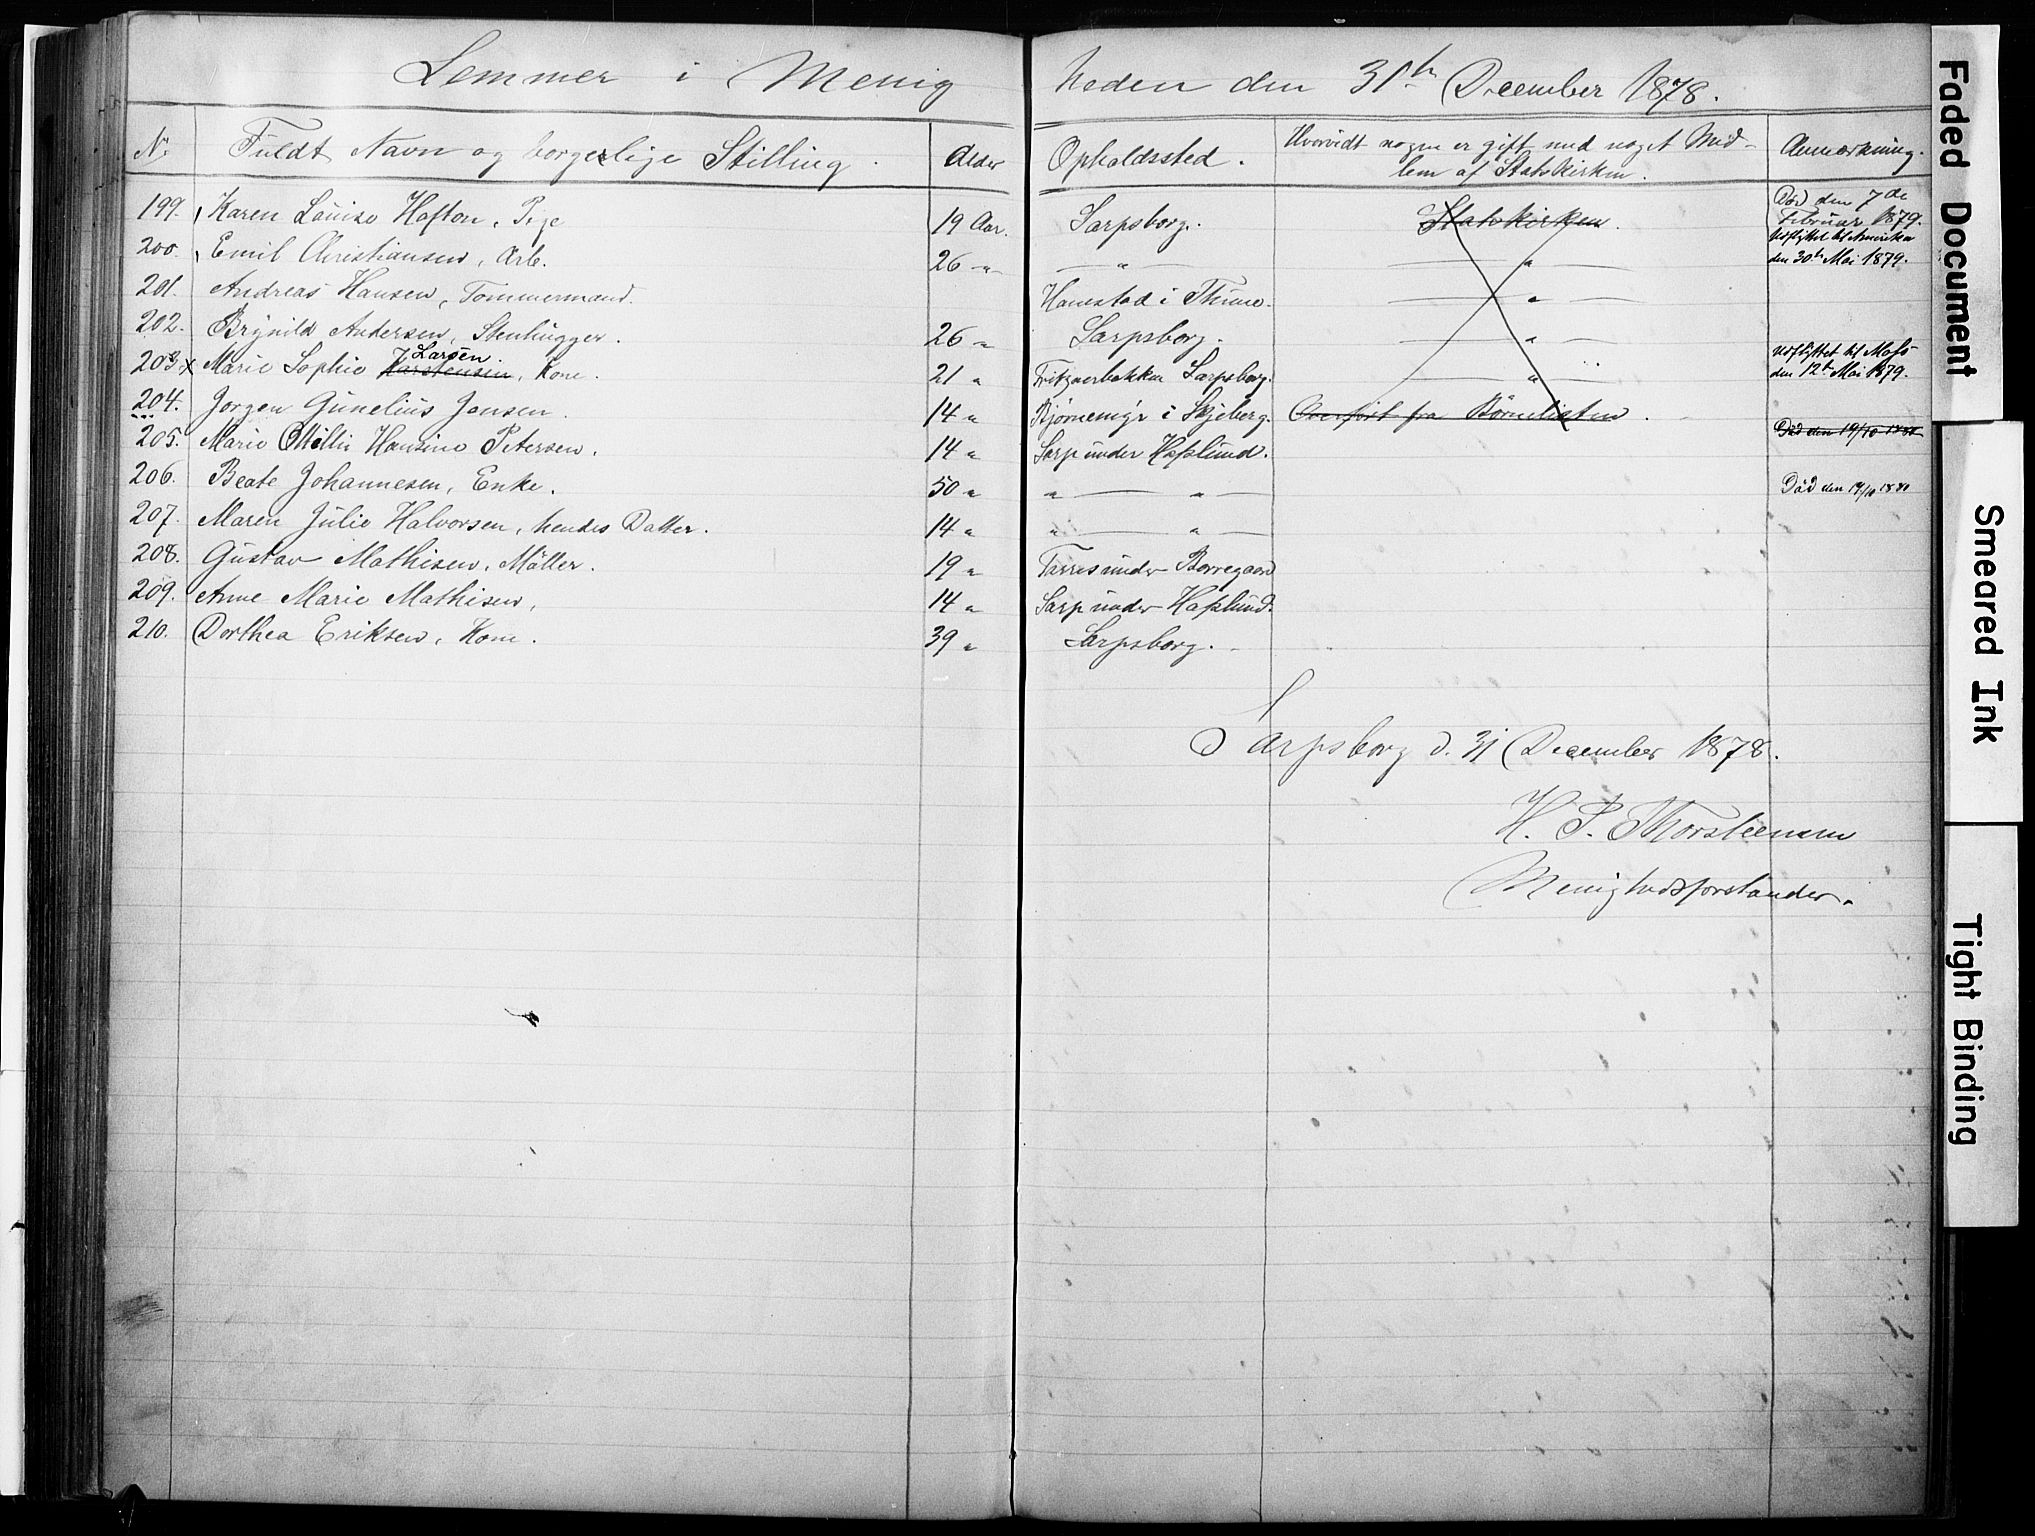 Lemmer i Menig heden den 31th December 1878.
No Fuldt Navn og borgerlige Stilling. Alder Opholdssted. Hvorvidt nogen er gift med noget Med- Anmærkning.
lem af Statskirken.
199. Karen Louise Hafton, Pige 19 Aar. Sarpsborg. Statskirken. Död den 7de
Februar 1879.
200. Emil Christiansen, Arb. 26 " " " Udflyttet til Amerika
den 30th Mai 1879.
201. Andreas Hansen, Tømmermand. Hanestad i Thune. "
202. Brynild Andersen, Stenhugger. 26 " Sarpsborg. "
Larsen.
203. x Marie Sophie Karstensen, Kone. 21 " Fritznerbakken Sarpsborg. " Udflyttet til Moss
den 12te Mai 1879.
204. Jorgen Gunelius Jensen. 14 " Bjørnemyr i Skjeberg. Overført fra Börnelisten.
205. Marie Otillie Hansine Petersen. 14 " Sarp under Hafslund. Död den 19/10 1880
206. Beate Johannesen, Enke. 50 " " " Död den 19/10 1880
207. Maren Julie Halvorsen, hendes Datter. 14 " " "
208. Gustav Mathisen, Möller. 19 " under Borregaard
209. Anne Marie Mathisen, 14 " Sarp under Hafslund.
210. Dorthea Eriksen, Kone. 39 " Sarpsborg.
Sarpsborg d. 31 December 1878.
H. P. Thorsteensen
Menighedsforstander.
Faded Document
Smeared Ink
Tight Binding